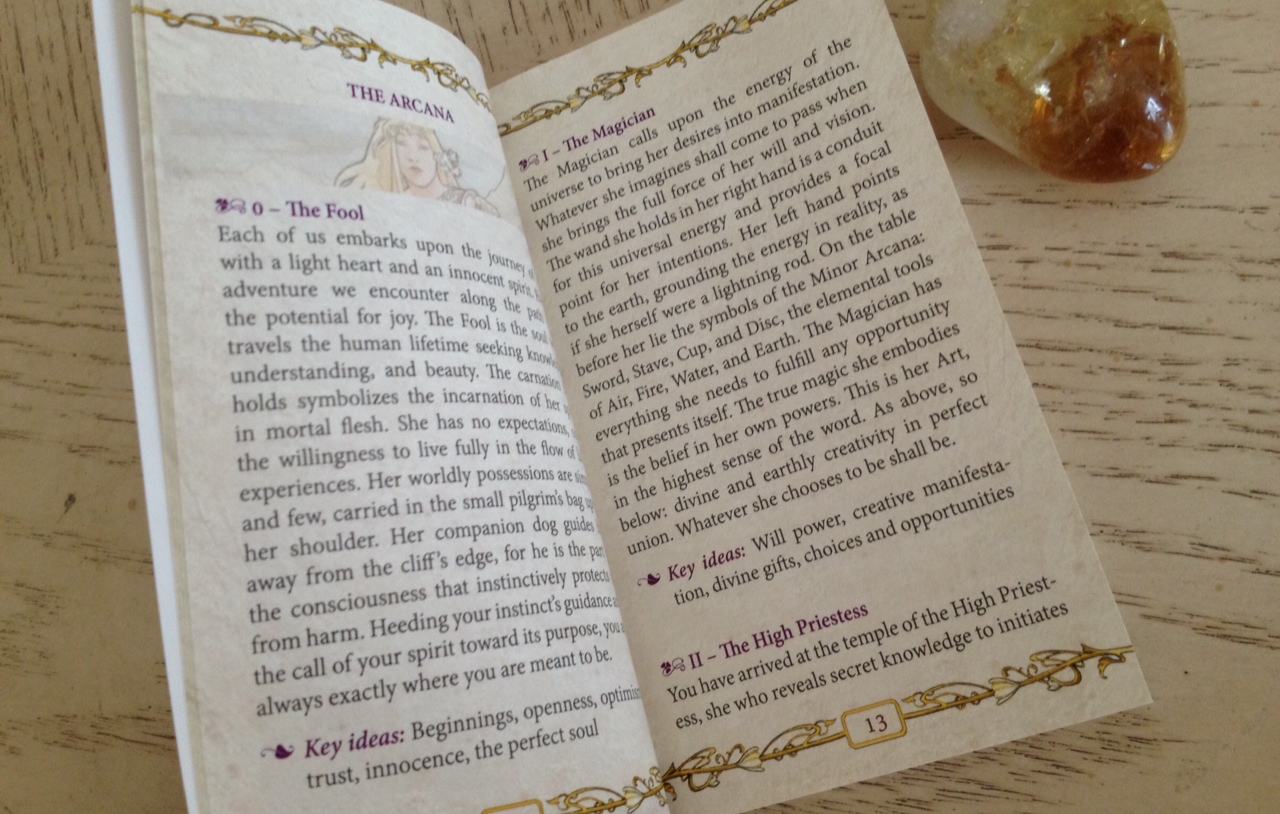 THE ARCANA
0 – The Fool
Each of us embarks upon the journey
with a light heart and an innocent spirit.
adventure we encounter along the
the potential for joy. The Fool is the
travels the human lifetime seeking
understanding, and beauty. The carnation
holds symbolizes the incarnation of her
in mortal flesh. She has no expectations,
the willingness to live fully in the flow of
experiences. Her worldly possessions are
and few, carried in the small pilgrim's bag
her shoulder. Her companion dog guides
away from the cliff's edge, for he is the
the consciousness that instinctively protects
from harm. Heeding your instinct's guidance
the call of your spirit toward its purpose, you
always exactly where you are meant to be.
Key ideas: Beginnings, openness,
trust, innocence, the perfect soul
I – The Magician
The Magician calls upon the energy of the
universe to bring her desires into manifestation.
Whatever she imagines shall come to pass when
she brings the full force of her will and vision.
The wand she holds in her right hand is a conduit
for this universal energy and provides a focal
point for her intentions. Her left hand points
to the earth, grounding the energy in reality, as
if she herself were a lightning rod. On the table
before her lie the symbols of the Minor Arcana:
Sword, Stave, Cup, and Disc, the elemental tools
of Air, Fire, Water, and Earth. The Magician has
everything she needs to fulfill any opportunity
that presents itself. The true magic she embodies
is the belief in her own powers. This is her Art,
in the highest sense of the word. As above, so
below: divine and earthly creativity in perfect
union. Whatever she chooses to be shall be.
Key ideas: Will power, creative manifesta-
tion, divine gifts, choices and opportunities
II – The High Priestess
You have arrived at the temple of the High Priest-
ess, she who reveals secret knowledge to initiates
13